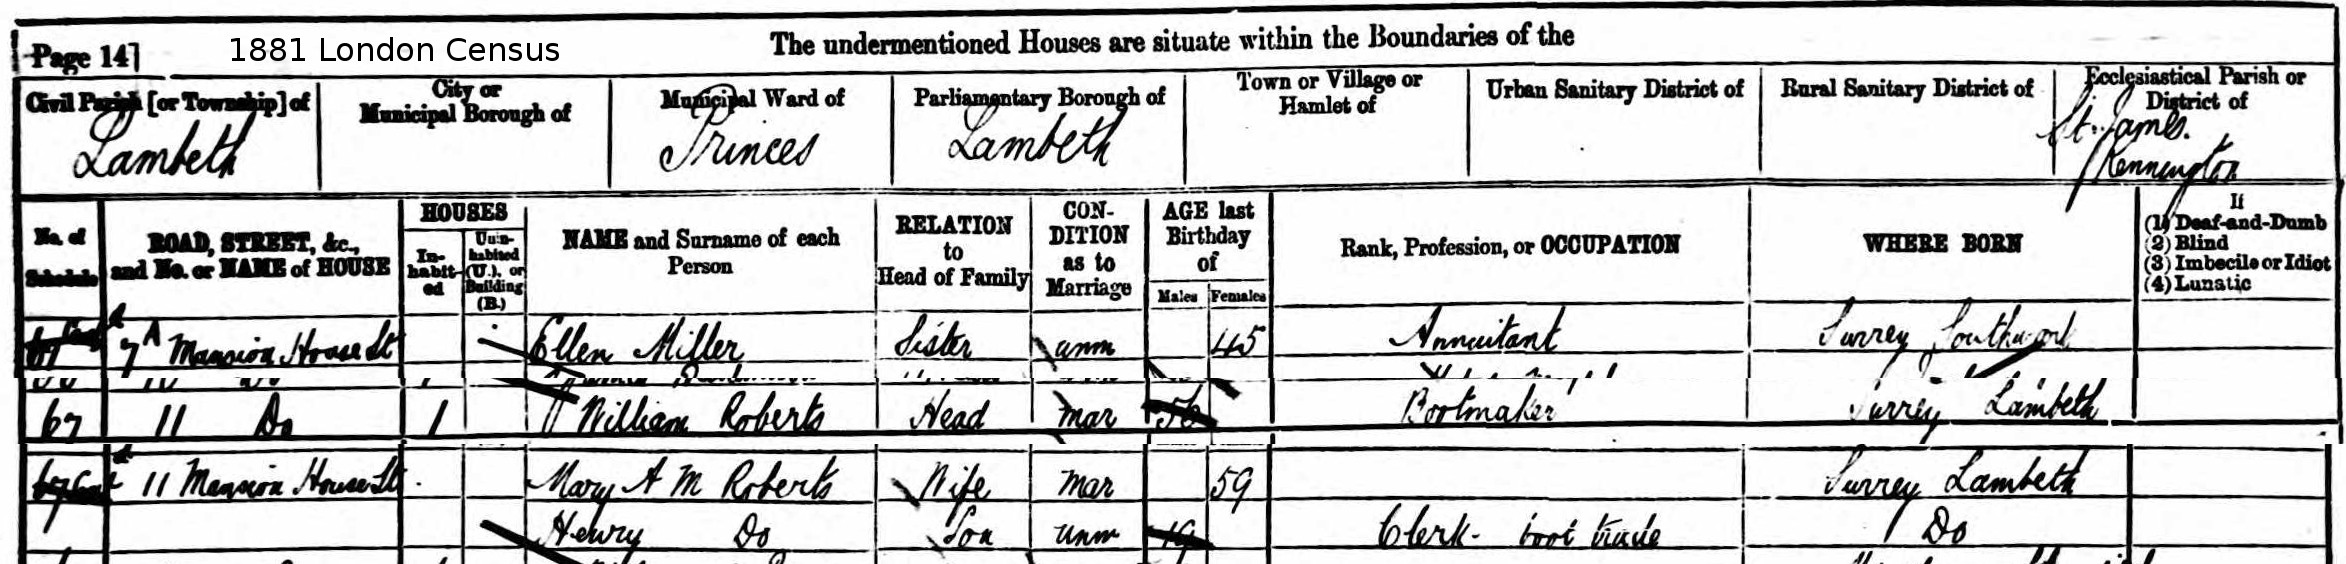 Page 14] 1881 London Census The undermentioned Houses are situate within the Boundaries of the
Civil Parish [or Township] of
Lambeth
City or Municipal Borough of
Municipal Ward of
Princes
Parliamentary Borough of
Lambeth
Town or Village or Hamlet of
Urban Sanitary District of
Rural Sanitary District of
Ecclesiastical Parish or District of
St. James.
Kennington
No. of Schedule
ROAD, STREET, &c., and No. or NAME of HOUSE
HOUSES
In-habit-ed
Unin-habited (U.), or Building (B.)
NAME and Surname of each Person
RELATION to Head of Family
CON-DITION as to Marriage
AGE last Birthday of
Males Females
Rank, Profession, or OCCUPATION
WHERE BORN
If
(1) Deaf-and-Dumb
(2) Blind
(3) Imbecile or Idiot
(4) Lunatic
7A Mansion House St Ellen Miller Sister unm 45 Annuitant Surrey Southwark
67 11 Do 1 William Roberts Head Mar 56 Bootmaker Surrey Lambeth
67 Contd 11 Mansion House St Mary A M Roberts Wife Mar 59 Surrey Lambeth
Henry Do Son Unm 19 Clerk - boot trade Do